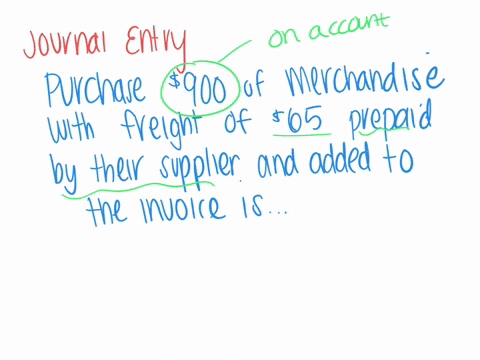 Journal Entry
on account
Purchase $900 of merchandise
with freight of $65 prepaid
by their supplier and added to
the invoice is...